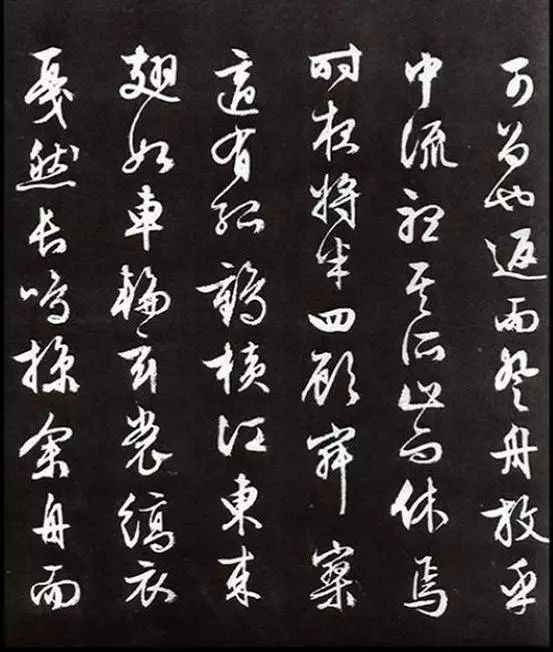 可留也返而登舟放乎
中流聽其所止而休焉
時夜將半四顧寂寥
適有孤鶴橫江東來
翅如車輪玄裳縞衣
戛然長鳴掠余舟而